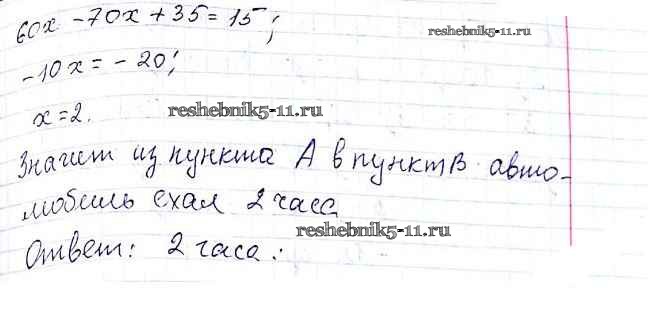 60x - 70x + 35 = 15;
reshebnik5-11.ru
-10x = -20;
x = 2.
reshebnik5-11.ru
Значит из пункта А в пункт В авто-
мобиль ехал 2 часа
reshebnik5-11.ru
Ответ: 2 часа.